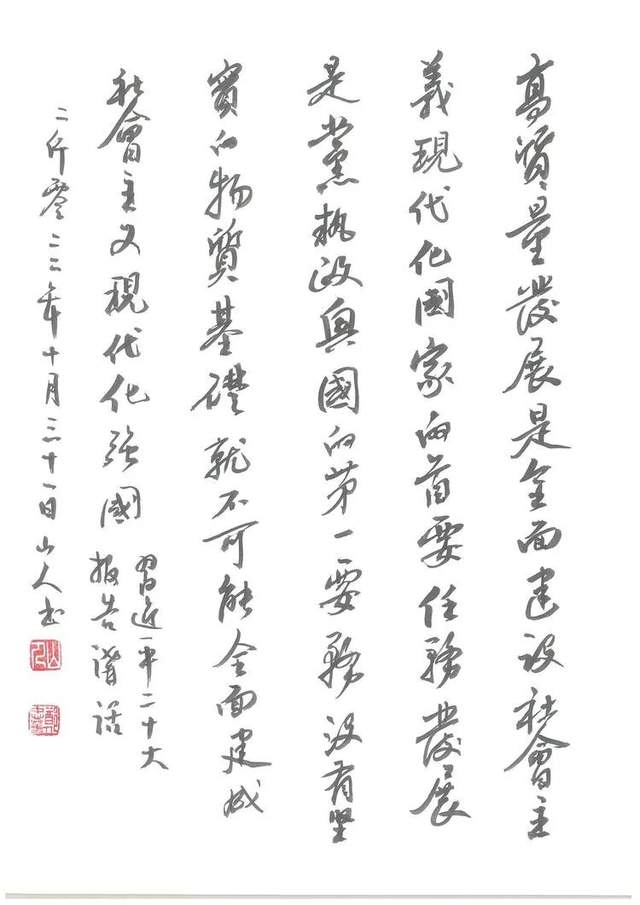 高質量發展是全面建设社會主
義現代化國家的首要任務發展
是黨執政興國的第一要務没有坚
實的物質基礎就不可能全面建成
社會主义現代化强國
習近平二十大
报告講話
二仟零二二年十月三十一日山人书
山人